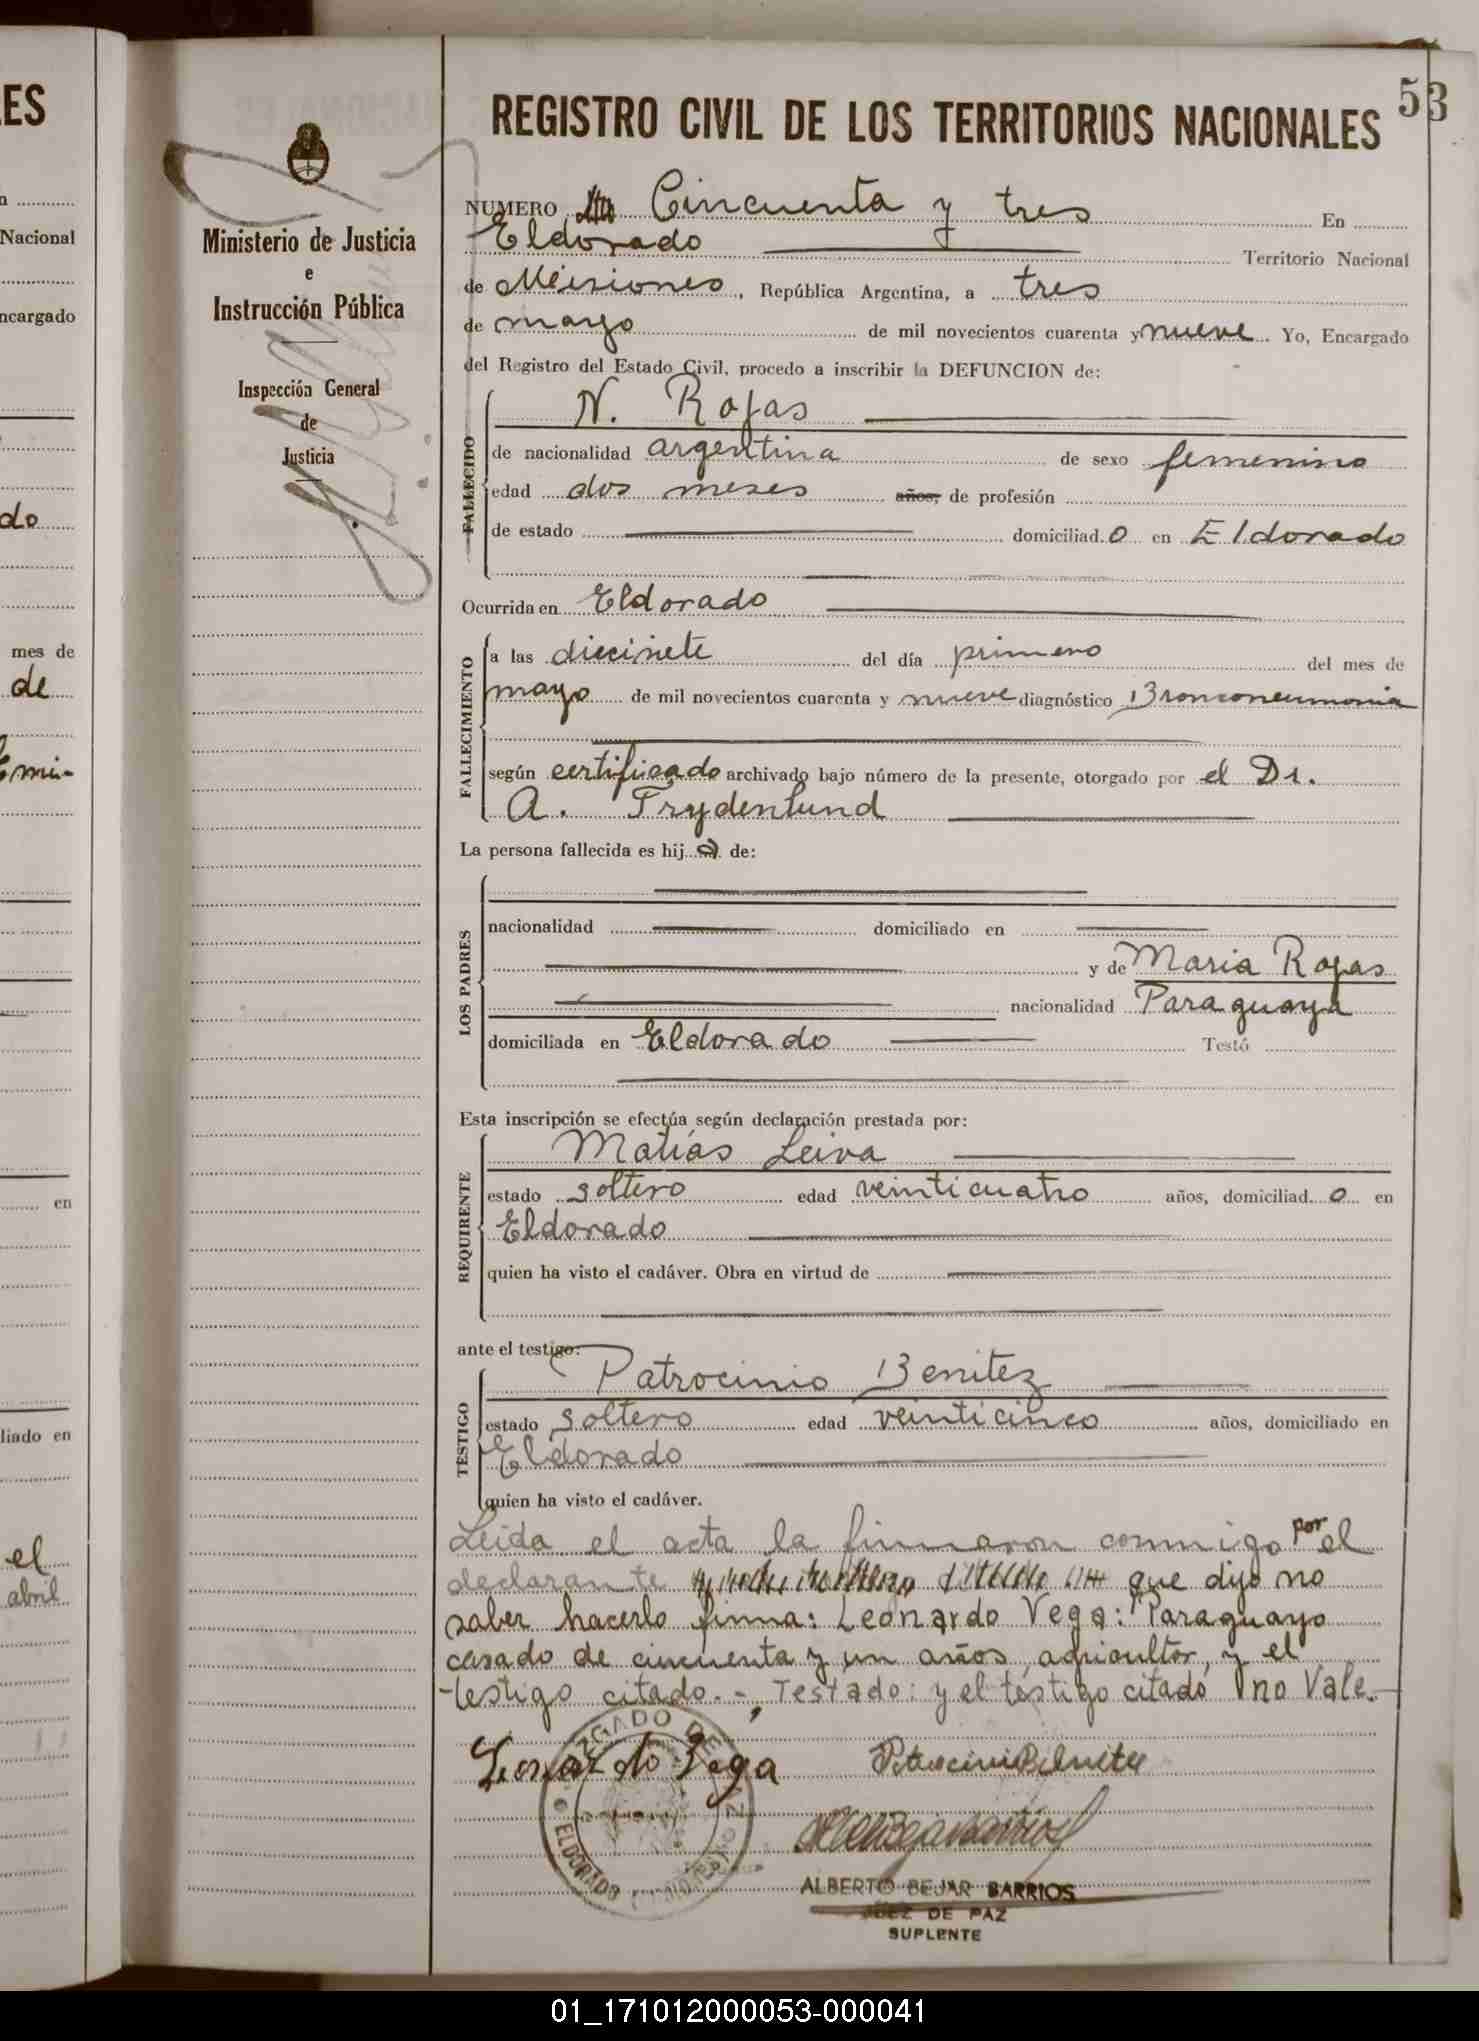 ES
Nacional
ncargado
do
mes de
de
en
liado en
el
abril
53
REGISTRO CIVIL DE LOS TERRITORIOS NACIONALES
Ministerio de Justicia
e
Instrucción Pública
Inspección General
de
Justicia
NUMERO Cincuenta y tres En
Eldorado Territorio Nacional
de Misiones, República Argentina, a tres
de mayo de mil novecientos cuarenta y nueve Yo, Encargado
del Registro del Estado Civil, procedo a inscribir la DEFUNCION de:
FALLECIDO
N. Rojas
de nacionalidad argentina de sexo femenino
edad dos meses años, de profesión
de estado domiciliad o en Eldorado
Ocurrida en Eldorado
FALLECIMIENTO
a las diecisiete del día primero del mes de
mayo de mil novecientos cuarenta y nueve diagnóstico Bronconeumonia
según certificado archivado bajo número de la presente, otorgado por el Dr.
A. Frydenlund
La persona fallecida es hij a de:
LOS PADRES
nacionalidad domiciliado en
y de Maria Rojas
nacionalidad Paraguaya
domiciliada en Eldorado Testó
Esta inscripción se efectúa según declaración prestada por:
REQUIRENTE
Matías Leiva
estado soltero edad veinticuatro años, domiciliad o en
Eldorado
quien ha visto el cadáver. Obra en virtud de
ante el testigo:
TESTIGO
Patrocinio Benitez
estado soltero edad veinticinco años, domiciliado en
Eldorado
quien ha visto el cadáver.
Leida el acta la firmaron conmigo por el
declarante que dijo no
saber hacerlo firma: Leonardo Vega: Paraguayo
casado de cincuenta y un años, agricultor, y el
testigo citado. -, Testado: y el testigo citado no Vale.-
Leonardo Vega Patrocinio Benitez
JUZGADO DE PAZ
ELDORADO
ALBERTO BEJAR BARRIOS
JUEZ DE PAZ
SUPLENTE
01_171012000053-000041